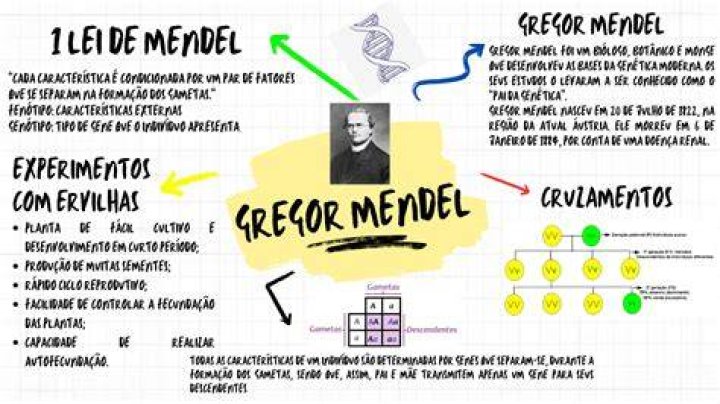 1 LEI DE MENDEL
"CADA CARACTERÍSTICA É CONDICIONADA POR UM PAR DE FATORES
QUE SE SEPARAM NA FORMAÇÃO DOS GAMETAS."
FENÓTIPO: CARACTERÍSTICAS EXTERNAS
GENÓTIPO: TIPO DE GENE QUE O INDIVÍDUO APRESENTA
GREGOR MENDEL
GREGOR MENDEL FOI UM BIÓLOGO, BOTÂNICO E MONGE
QUE DESENVOLVEU AS BASES DA GENÉTICA MODERNA. OS
SEUS ESTUDOS O LEVARAM A SER CONHECIDO COMO O
"PAI DA GENÉTICA".
GREGOR MENDEL NASCEU EM 20 DE JULHO DE 1822, NA
REGIÃO DA ATUAL ÁUSTRIA. ELE MORREU EM 6 DE
JANEIRO DE 1884, POR CONTA DE UMA DOENÇA RENAL.
EXPERIMENTOS
COM ERVILHAS
• PLANTA DE FÁCIL CULTIVO E
DESENVOLVIMENTO EM CURTO PERÍODO;
• PRODUÇÃO DE MUITAS SEMENTES;
• RÁPIDO CICLO REPRODUTIVO;
• FACILIDADE DE CONTROLAR A FECUNDAÇÃO
DAS PLANTAS;
• CAPACIDADE DE REALIZAR
AUTOFECUNDAÇÃO.
GREGOR MENDEL
CRUZAMENTOS
VV
VV
VV
Vv
Vv
Gametas
A a
Gametas
A AA Aa
Descendentes
a Aa aa
TODAS AS CARACTERÍSTICAS DE UM INDIVÍDUO SÃO DETERMINADAS POR GENES QUE SEPARAM-SE, DURANTE A
FORMAÇÃO DOS GAMETAS, SENDO QUE, ASSIM, PAI E MÃE TRANSMITEM APENAS UM GENE PARA SEUS
DESCENDENTES